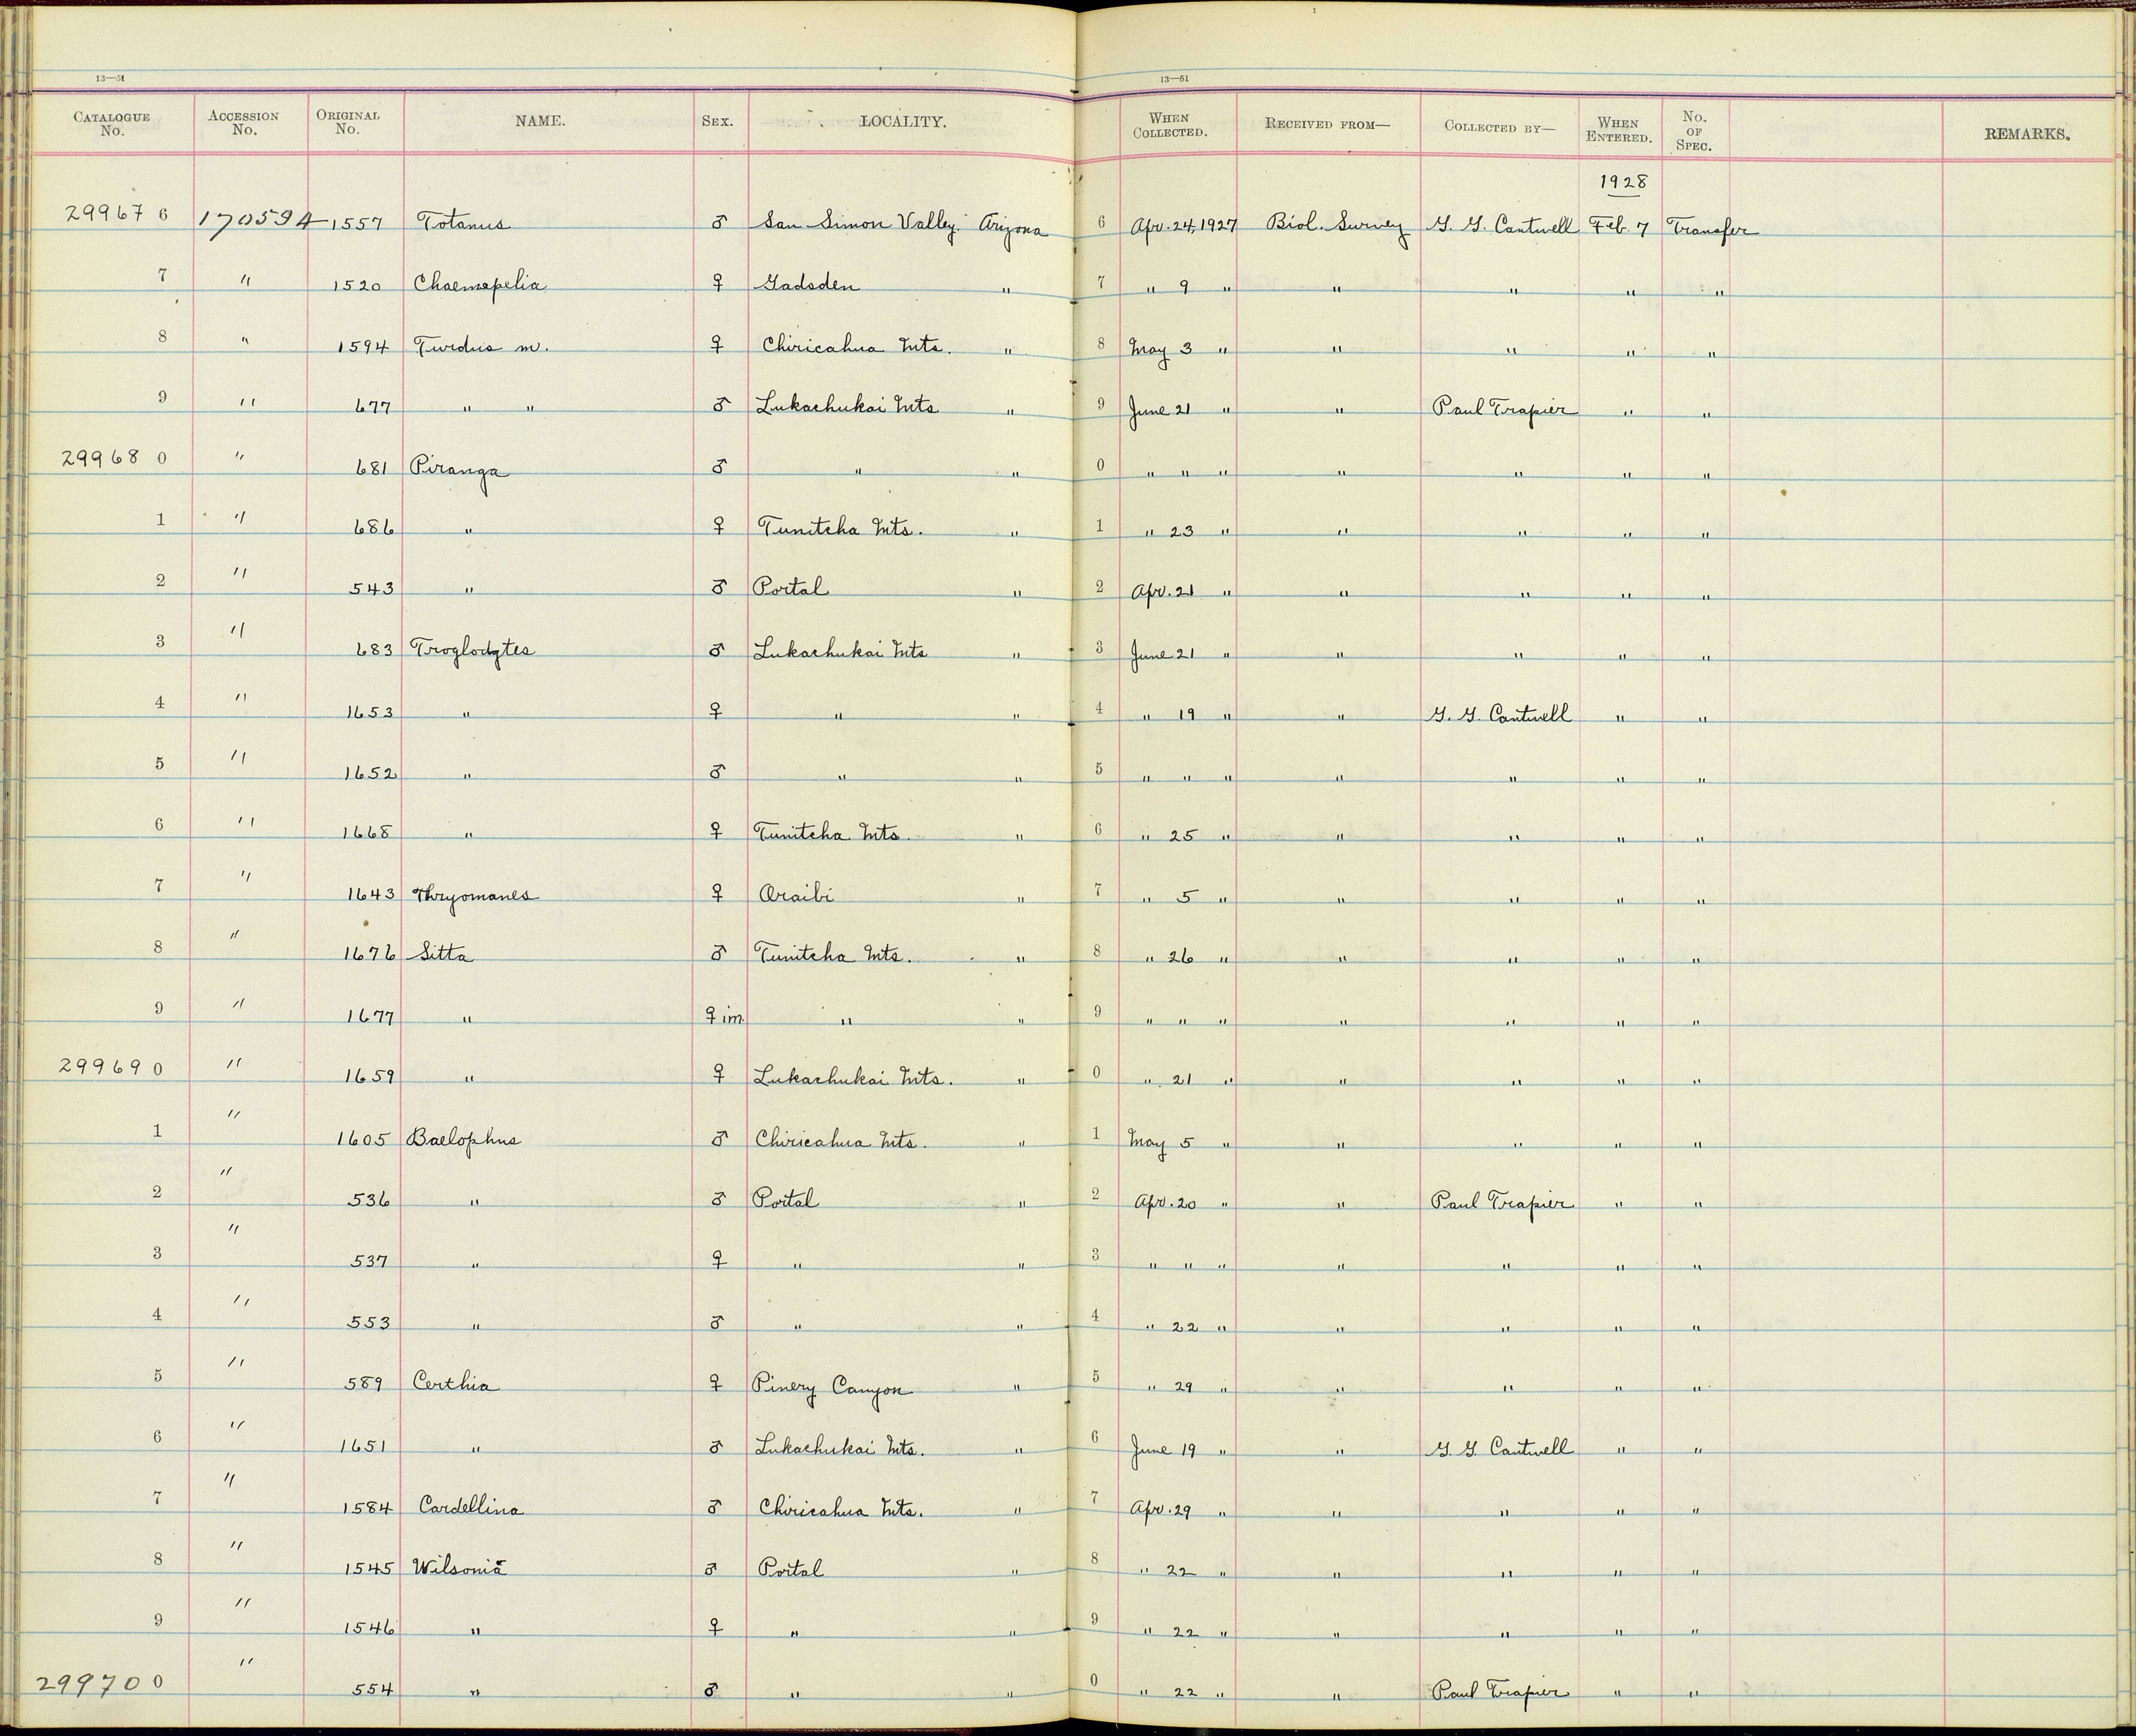 13—51 13—51
CATALOGUE No. ACCESSION No. ORIGINAL No. NAME. SEX. LOCALITY. WHEN COLLECTED. RECEIVED FROM— COLLECTED BY— WHEN ENTERED. No. OF SPEC. REMARKS.
1928
299676 170594 1557 Totanus ♂ San Simon Valley. Arizona 6 Apr. 24, 1927 Biol. Survey G. G. Cantwell Feb. 7 Transfer
7 " 1520 Chaemepelia ♀ Gadsden " 7 " 9 " " " " "
8 " 1594 Turdus m. ♀ Chiricahua Mts. " 8 May 3 " " " " "
9 " 677 " " ♂ Lukachukai Mts " 9 June 21 " " Paul Trapier " "
299680 " 681 Piranga ♂ " " 0 " " " " " " "
1 " 686 " ♀ Tunitcha Mts. " 1 " 23 " " " " "
2 " 543 " ♂ Portal " 2 Apr. 21 " " " " "
3 " 683 Troglodytes ♂ Lukachukai Mts " 3 June 21 " " " " "
4 " 1653 " ♀ " " 4 " 19 " " G. G. Cantwell " "
5 " 1652 " ♂ " " 5 " " " " " " "
6 " 1668 " ♀ Tunitcha Mts. " 6 " 25 " " " " "
7 " 1643 Thryomanes ♀ Oraibi " 7 " 5 " " " " "
8 " 1676 Sitta ♂ Tunitcha Mts. " 8 " 26 " " " " "
9 " 1677 " ♀ im. " " 9 " " " " " " "
299690 " 1659 " ♀ Lukachukai Mts. " 0 " 21 " " " " "
1 " 1605 Baelophus ♂ Chiricahua Mts. " 1 May 5 " " " " "
2 " 536 " ♂ Portal " 2 Apr. 20 " " Paul Trapier " "
3 " 537 " ♀ " " 3 " " " " " " "
4 " 553 " ♂ " " 4 " 22 " " " " "
5 " 589 Certhia ♀ Pinery Canyon " 5 " 29 " " " " "
6 " 1651 " ♂ Lukachukai Mts. " 6 June 19 " " G. G. Cantwell " "
7 " 1584 Cardellina ♂ Chiricahua Mts. " 7 Apr. 29 " " " " "
8 " 1545 Wilsonia ♂ Portal " 8 " 22 " " " " "
9 " 1546 " ♀ " " 9 " 22 " " " " "
299700 " 554 " ♂ " " 0 " 22 " " Paul Trapier " "